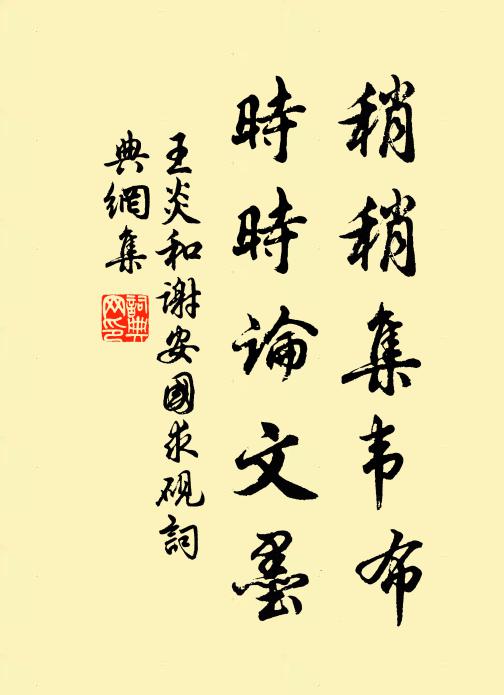 稍稍集韦布
時時論文墨
王炎和谢安國求硯詞
典網集
詞典網印